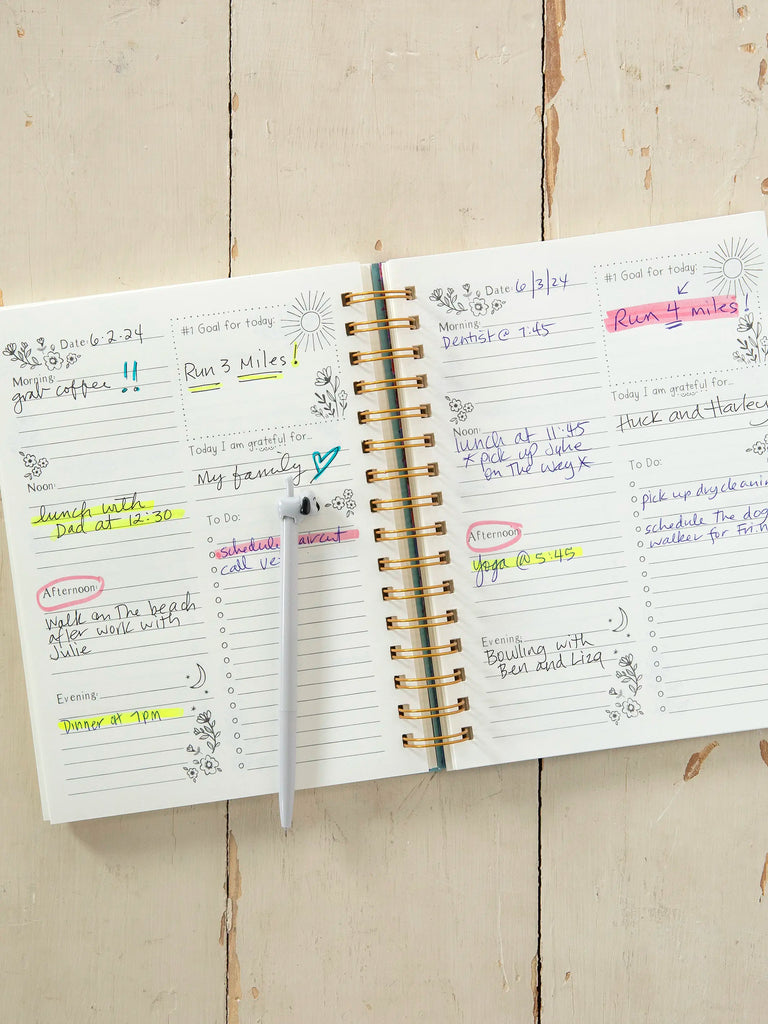 Date: 6-2-24
Morning:
grab coffee !!
Noon:
lunch with
Dad at 12:30
Afternoon:
walk on the beach
after work with
Julie
Evening:
Dinner at 7PM
#1 Goal for today:
Run 3 Miles!
Today I am grateful for...
My family
To Do:
schedule
call
Date: 6/3/24
Morning:
Dentist @ 7:45
Noon:
lunch at 11:45
*pick up Julie
on the way*
Afternoon:
yoga @ 5:45
Evening:
Bowling with
Ben and Liza
#1 Goal for today:
Run 4 miles!
Today I am grateful for...
Huck and Harley
To Do:
pick up
schedule the dog
walker for